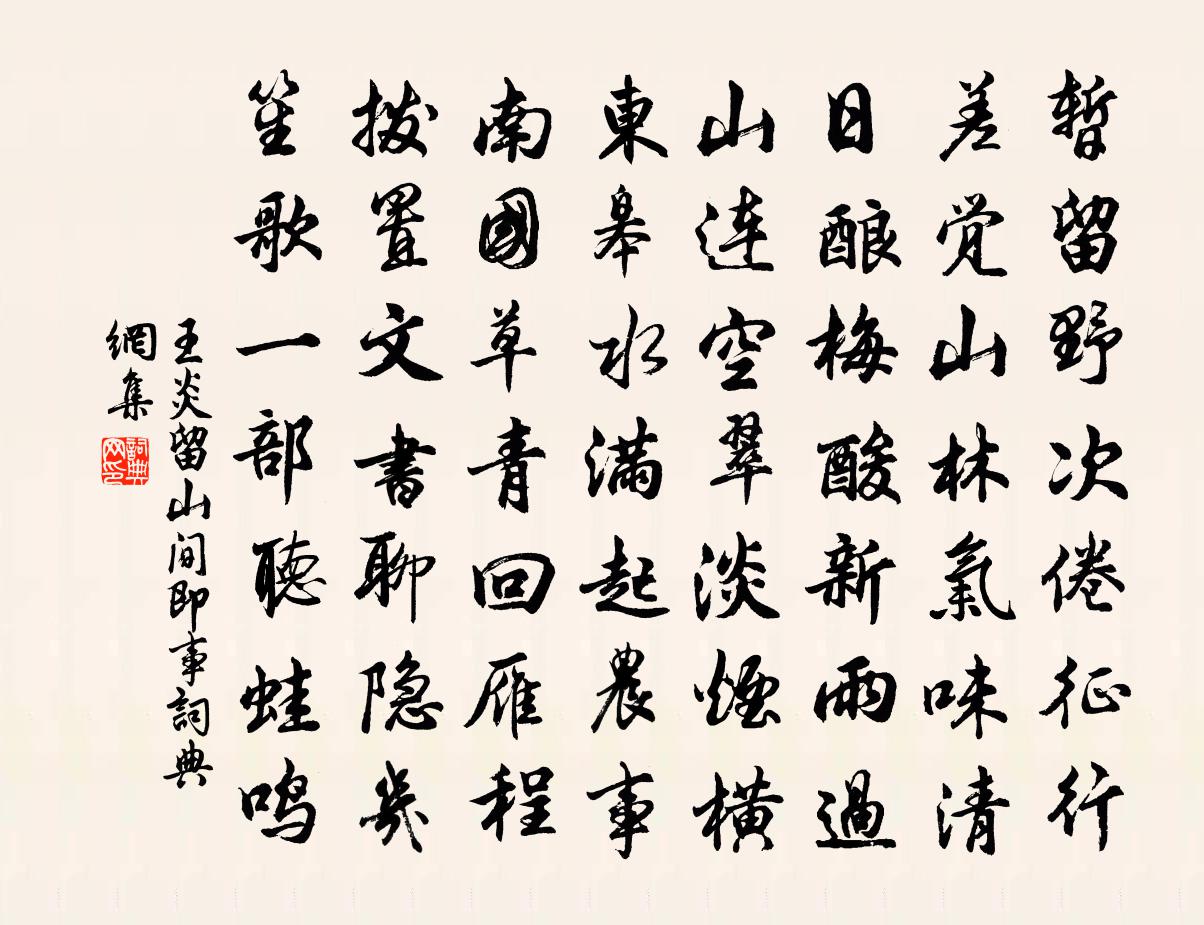 暫留野次倦征行
差觉山林氣味清
日酿梅酸新雨過
山连空翠淡煙橫
東皋水满起農事
南國草青回雁程
拨置文書聊隐幾
笙歌一部聽蛙鸣
王炎留山间即事詞典
網集
詞典
网印